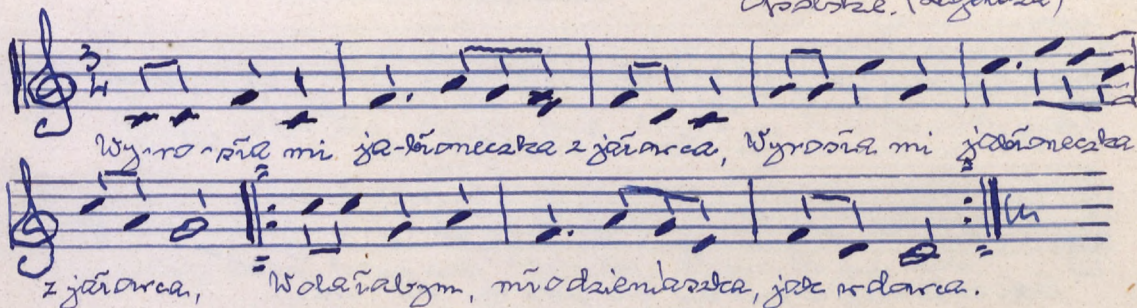 Opolskie.
3
4
Wy-ro-sła mi ja-błoneczka z jałowca, Wyrosła mi jabłoneczka
z jałowca, Wolałabym, młodzieniaszka, jak wdowca.